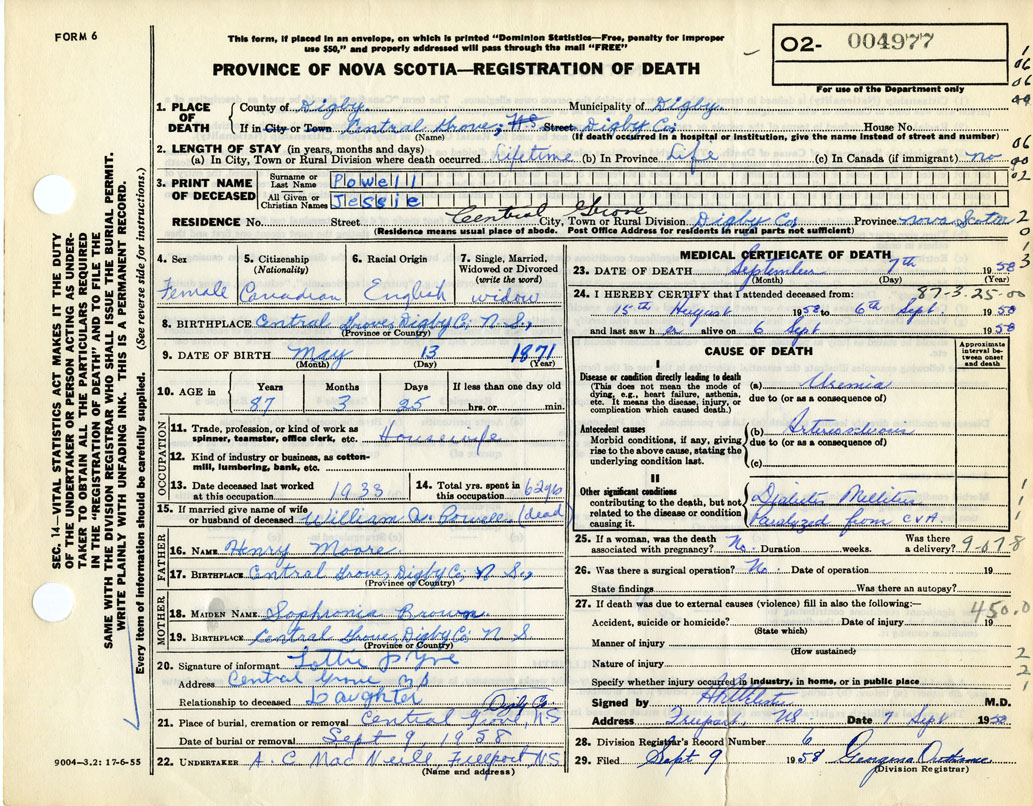 FORM 6
This form, if placed in an envelope, on which is printed "Dominion Statistics—Free, penalty for improper
use $50," and properly addressed will pass through the mail "FREE"
PROVINCE OF NOVA SCOTIA—REGISTRATION OF DEATH
O2- 004977
For use of the Department only
1. PLACE OF DEATH County of Digby Municipality of Digby
If in City or Town Central Grove, NS Street Digby Co House No.
(Name) (If death occurred in a hospital or institution, give the name instead of street and number)
2. LENGTH OF STAY (in years, months and days)
(a) In City, Town or Rural Division where death occurred Lifetime (b) In Province Life (c) In Canada (if immigrant) No
3. PRINT NAME OF DECEASED Surname or Last Name Powell
All Given or Christian Names Jessie
RESIDENCE No. Street Central Grove City, Town or Rural Division Digby Co Province Nova Scotia
(Residence means usual place of abode. Post Office Address for residents in rural parts not sufficient)
4. Sex Female
5. Citizenship (Nationality) Canadian
6. Racial Origin English
7. Single, Married, Widowed or Divorced (write the word) widow
8. BIRTHPLACE Central Grove, Digby Co, N.S,
(Province or Country)
9. DATE OF BIRTH May 13 1871
(Month) (Day) (Year)
10. AGE in Years 87 Months 3 Days 25 If less than one day old hrs. or min.
OCCUPATION
11. Trade, profession, or kind of work as spinner, teamster, office clerk, etc. Housewife
12. Kind of industry or business, as cotton-mill, lumbering, bank, etc.
13. Date deceased last worked at this occupation 1933
14. Total yrs. spent in this occupation
15. If married give name of wife or husband of deceased William Powell (dead)
FATHER
16. NAME Henry Moore
17. BIRTHPLACE Central Grove, Digby Co, N S,
(Province or Country)
MOTHER
18. MAIDEN NAME Sophronia Brown
19. BIRTHPLACE Central Grove, Digby Co N S
(Province or Country)
20. Signature of informant Lottie
Address Central Grove NS
Relationship to deceased Daughter
21. Place of burial, cremation or removal Central Grove, NS Digby Co
Date of burial or removal Sept 9 1958
22. UNDERTAKER A. C. MacNeill Freeport, NS
(Name and address)
MEDICAL CERTIFICATE OF DEATH
23. DATE OF DEATH September 7th 1958
(Month) (Day) (Year)
87-3-25-00
24. I HEREBY CERTIFY that I attended deceased from:
15th August 1958 to 6th Sept. 1958
and last saw her alive on 6 Sept 1958
CAUSE OF DEATH
Approximate interval between onset and death
I
Disease or condition directly leading to death
(This does not mean the mode of dying, e.g., heart failure, asthenia, etc. It means the disease, injury, or complication which caused death.)
(a) Uremia
due to (or as a consequence of)
Antecedent causes
Morbid conditions, if any, giving rise to the above cause, stating the underlying condition last.
(b) Arteriosclerosis
due to (or as a consequence of)
(c)
II
Other significant conditions
contributing to the death, but not related to the disease or condition causing it.
Diabetes Mellitus
Paralyzed from CVA.
25. If a woman, was the death associated with pregnancy? No Duration weeks. Was there a delivery? 9-07-8
26. Was there a surgical operation? No Date of operation 19
State findings Was there an autopsy?
27. If death was due to external causes (violence) fill in also the following: 450.0
Accident, suicide or homicide? Date of injury 19
(State which)
Manner of injury
(How sustained)
Nature of injury
Specify whether injury occurred in industry, in home, or in public place
Signed by M.D.
Address Freeport, NS Date 7 Sept 1958
28. Division Registrar's Record Number 6
29. Filed Sept 9 1958 Georgina
(Division Registrar)
9004—3.2: 17-6-55
SEC. 14—VITAL STATISTICS ACT MAKES IT THE DUTY
OF THE UNDERTAKER OR PERSON ACTING AS UNDER-
TAKER TO OBTAIN ALL THE PARTICULARS REQUIRED
IN THE "REGISTRATION OF DEATH" AND TO FILE THE
SAME WITH THE DIVISION REGISTRAR WHO SHALL ISSUE THE BURIAL PERMIT.
WRITE PLAINLY WITH UNFADING INK. THIS IS A PERMANENT RECORD.
Every item of information should be carefully supplied. (See reverse side for instructions.)